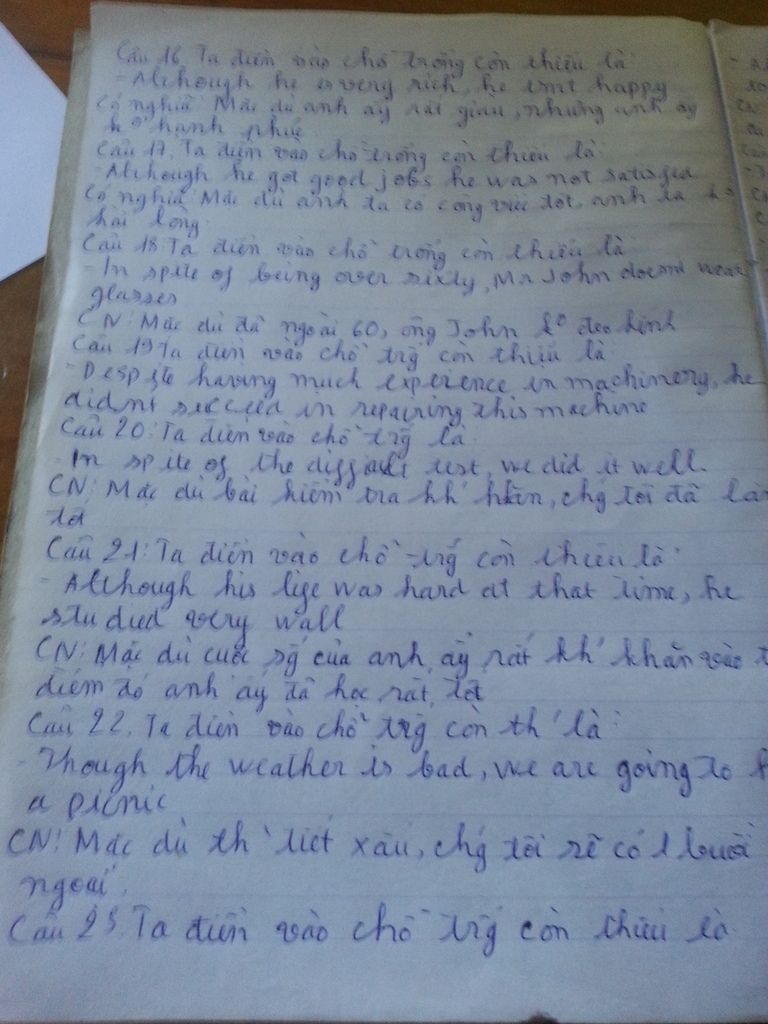 Câu 16 Ta điền vào chỗ trống còn thiếu là:
- Although he is very rich, he isnt happy
Có nghĩa: Mặc dù anh ấy rất giàu, nhưng anh ấy
k° hạnh phúc
Câu 17. Ta điền vào chỗ trống còn thiếu là:
- Although he got good jobs he was not satisfied
Có nghĩa: Mặc dù anh ta có công việc tốt, anh ta k°
hài lòng
Câu 18: Ta điền vào chỗ trống còn thiếu là
- In spite of being over sixty, Mr John doesnt wear
glasses
CN: Mặc dù đã ngoài 60, ông John k° đeo kính
Câu 19: Ta điền vào chỗ trg còn thiếu là
- Despite having much experence in machinery, he
didnt succeed in repairing this machine
Câu 20: Ta điền vào chỗ trg là
- In spite of the difficult test, we did it well.
CN: Mặc dù bài kiểm tra kh' khăn, chg tôi đã
tốt
Câu 21: Ta điền vào chỗ trg còn thiếu là:
- Although his life was hard at that time, he
studied very wall
CN: Mặc dù cuộc sg của anh ấy rất kh' khăn vào
điểm đó anh ấy đã học rất tốt
Câu 22. Ta điền vào chỗ trg còn th' là:
- Though the weather is bad, we are going to
a picnic
CN: Mặc dù th` tiết xấu, chg tôi sẽ có 1 buổi
ngoại
Câu 23. Ta điền vào chỗ trg còn thiếu là